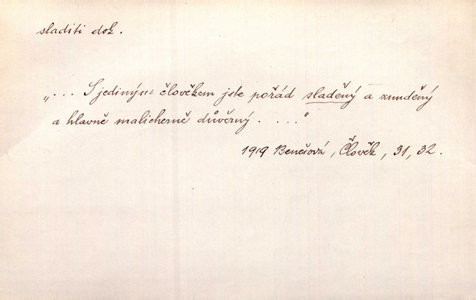 sladiti dok.
„... S jediným člověkem jste pořád sladěný a
a hlavně malicherně důvěrný. ...."
1919 Benešová, Člověk, 31, 32.